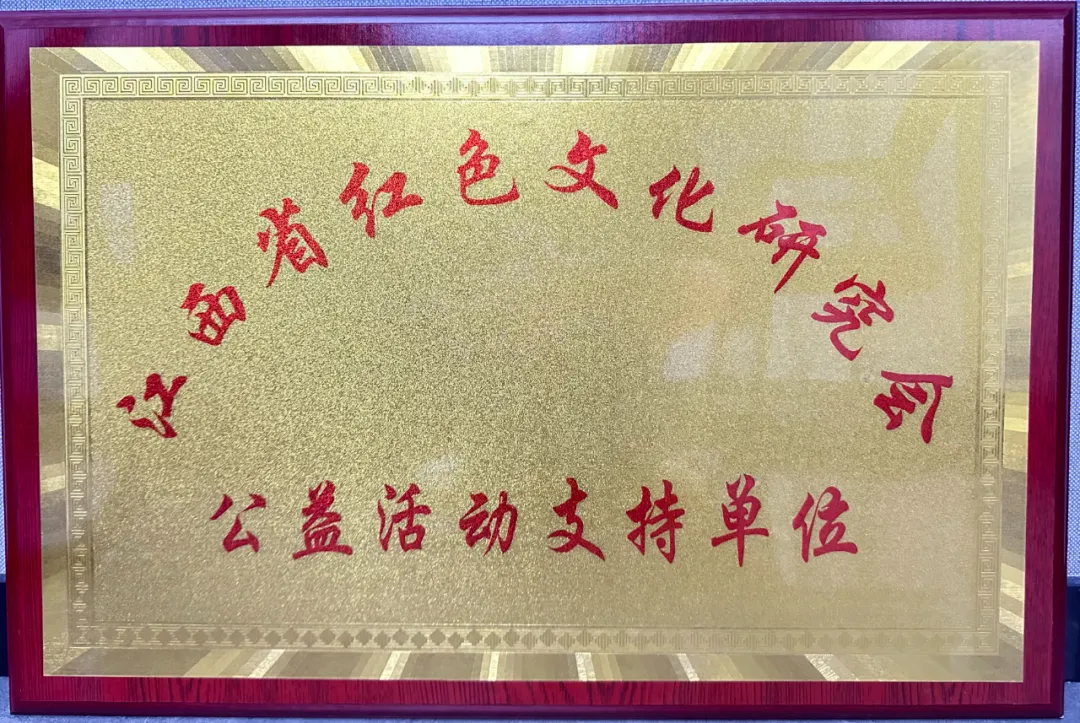 江西省红色文化研究会
公益活动支持单位